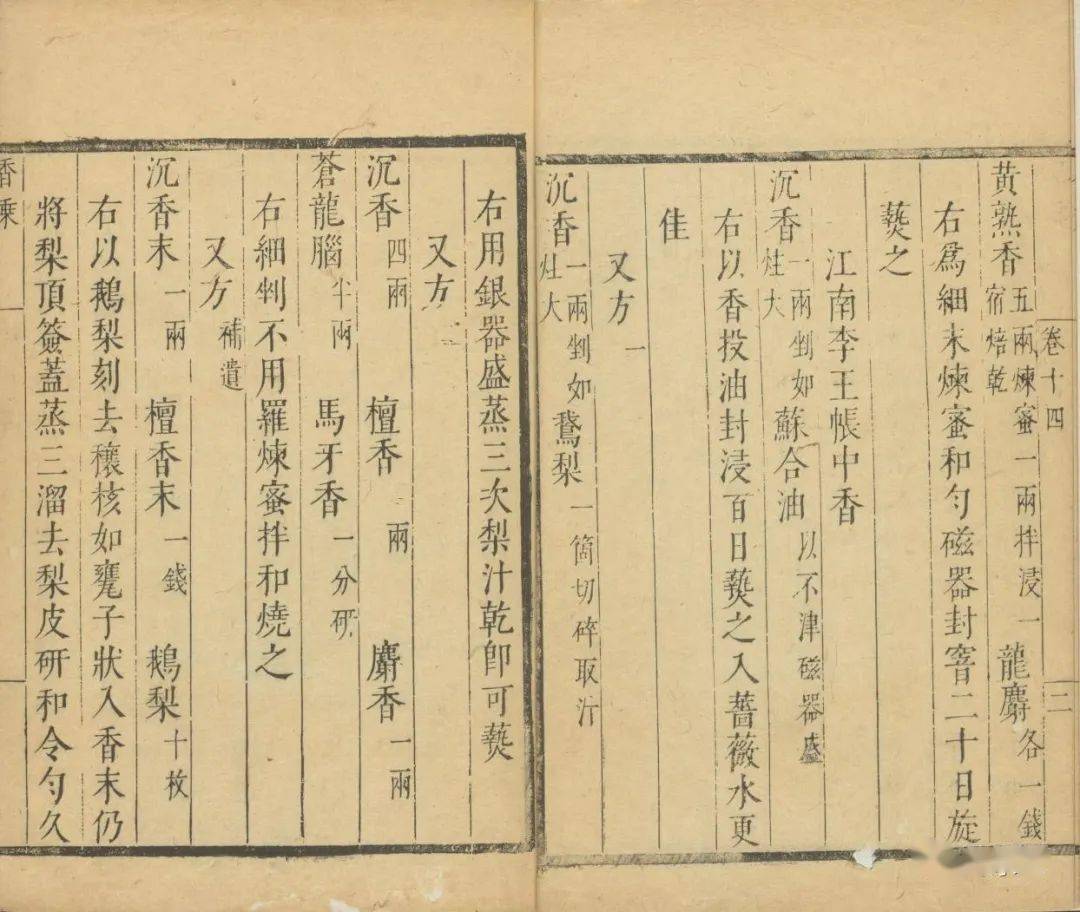 卷十四 二
黄熟香 五兩煉蜜一兩拌浸一宿焙乾 龍麝 各一錢
右爲細末煉蜜和勻磁器封窨二十日旋
爇之
江南李王帳中香
沉香 一兩剉如炷大 蘇合油 以不津磁器盛
右以香投油封浸百日爇之入薔薇水更
佳
又方 一
沉香 一兩剉如炷大 鵞梨 一箇切碎取汁
右用銀器盛蒸三次梨汁乾卽可爇
又方 二
沉香 四兩 檀香 兩 麝香 一兩
蒼龍腦 半兩 馬牙香 一分研
右細剉不用羅煉蜜拌和燒之
又方 補遺
沉香末 一兩 檀香末 一錢 鵝梨 十枚
右以鵝梨刻去穰核如甕子狀入香末仍
將梨頂簽蓋蒸三溜去梨皮研和令勻久
香乘